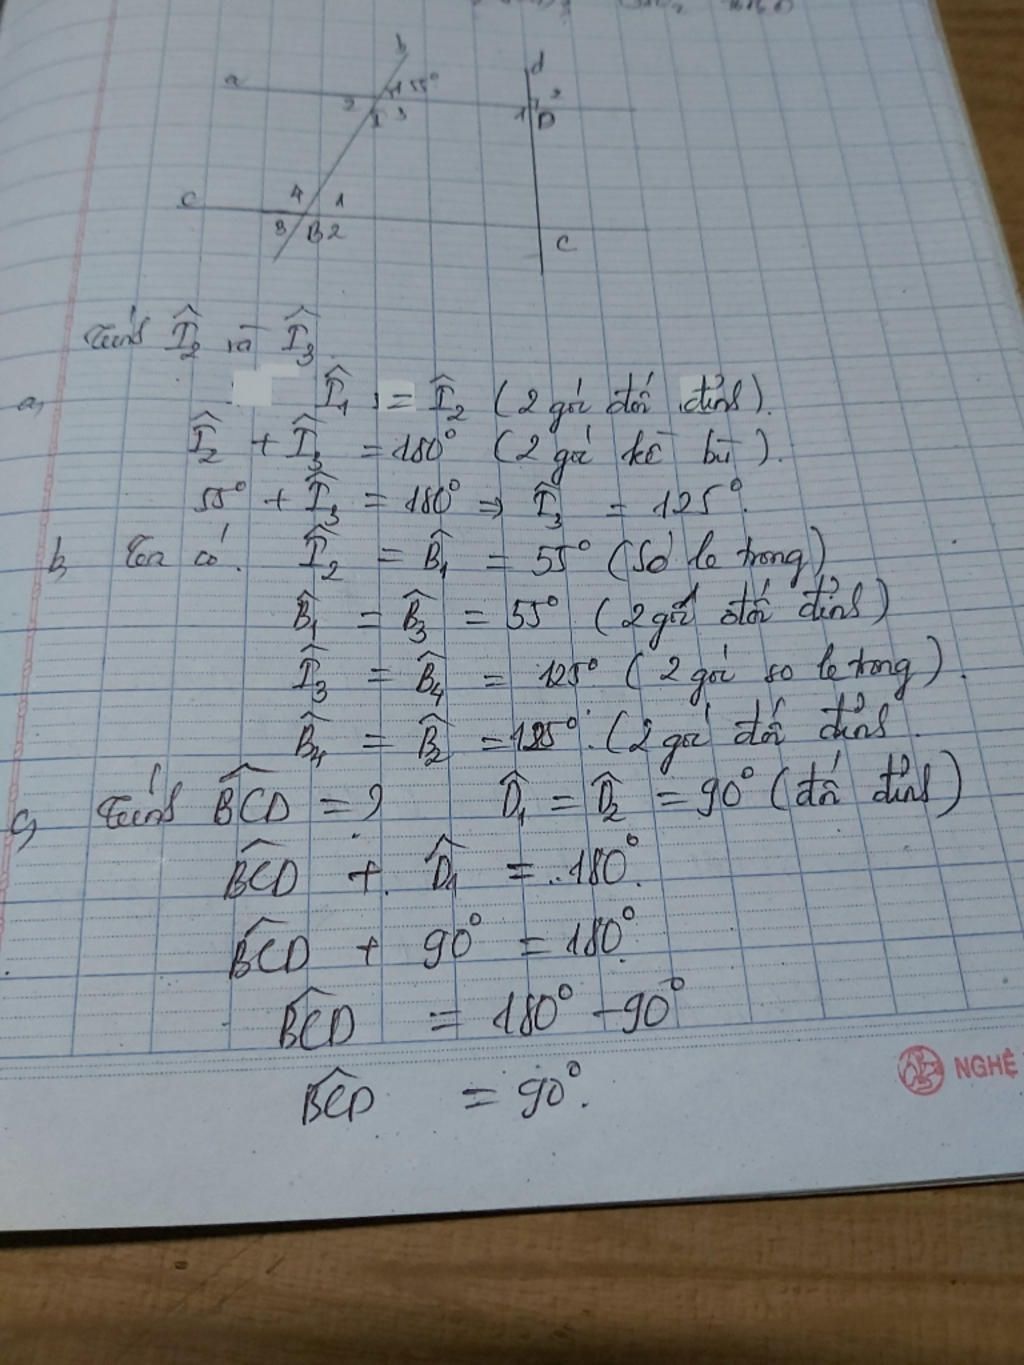 b
d
a
1 55°
2
2 I 3
1 D
c
4 1
3 B 2
C
Tính Î₂ và Î₃
a, Î₁ = Î₂ (2 góc đối đỉnh).
Î₂ + Î₃ = 180° (2 góc kề bù).
55° + Î₃ = 180° ⇒ Î₃ = 125°.
b, Ta có. Î₂ = B̂₁ = 55° (so le trong)
B̂₁ = B̂₃ = 55° (2 góc đối đỉnh)
Î₃ = B̂₄ = 125° (2 góc so le trong).
B̂₄ = B̂₂ = 125°. (2 góc đối đỉnh.
c, Tính B̂CD = ? D̂₁ = D̂₂ = 90° (đối đỉnh)
B̂CD + D̂₁ = 180°.
B̂CD + 90° = 180°.
B̂CD = 180° - 90°
B̂CD = 90°.
NGHỆ